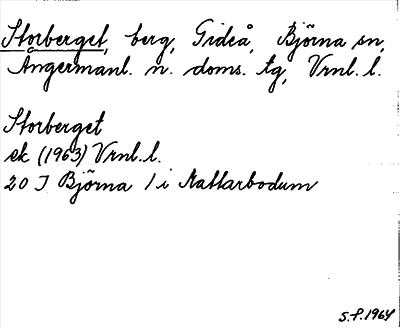 Storberget, berg, Gideå, Björna sn,
Ångermanl. n. doms. tg, Vrnl. l.
Storberget
ek (1963) Vrnl. l.
20 J Björna 1 i Mattarbodum
S.F. 1964